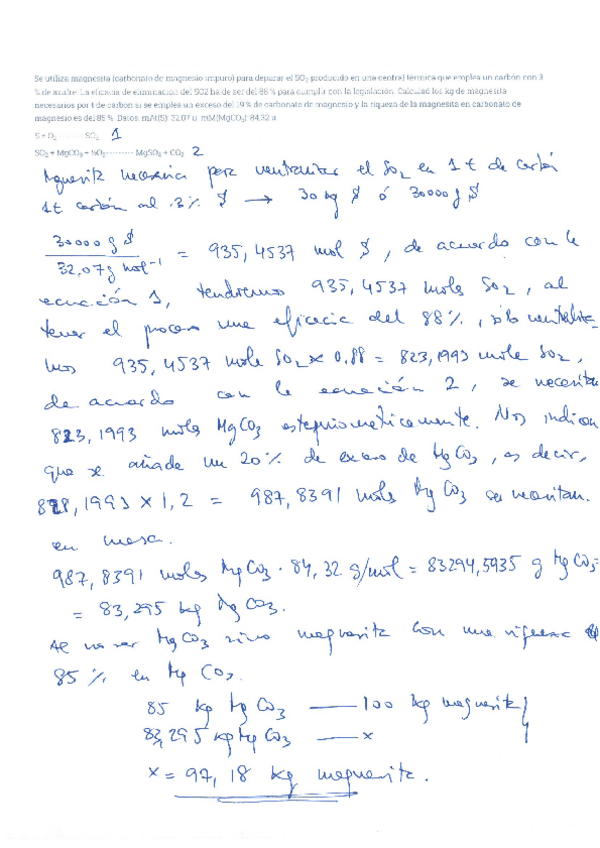 Se utiliza magnesita (carbonato de magnesio impuro) para depurar el SO₂ producido en una central térmica que emplea un carbón con 3
% de azufre. La eficacia de eliminación del SO2 ha de ser del 88 % para cumplir con la legislación. Calculad los kg de magnesita
necesarios por t de carbón si se emplea un exceso del % de carbonato de magnesio y la riqueza de la magnesita en carbonato de
magnesio es del 85 %. Datos: mAt(S): 32,07 u mM(MgCO₃): 84,32 u
S + O₂ --------- SO₂ 1
SO₂ + MgCO₃ + ½O₂ --------- MgSO₄ + CO₂ 2
necesaria para neutralizar el SO₂ en 1 t de carbón
1t carbón al 3% S → 30 kg S ó 30000 g S
30000 g S
32,07 g mol⁻¹ = 935,4537 mol S, de acuerdo con la
ecuación 1, tendremos 935,4537 moles SO₂, al
tener el proceso una eficacia del 88%, sólo neutraliza
mos 935,4537 mole SO₂ x 0,88 = 823,1993 mole SO₂,
de acuerdo con la ecuación 2, se necesitan
823,1993 moles MgCO₃ estequiometricamente. Nos indican
que se añade un 20% de exceso de MgCO₃, es decir,
823,1993 x 1,2 = 987,8391 moles MgCO₃ se necesitan.
en masa.
987,8391 moles MgCO₃ · 84,32 g/mol = 83294,5935 g MgCO₃=
= 83,295 kg MgCO₃.
Al no ser MgCO₃ sino magnesita con una riqueza
85 % en Mg CO₃.
85 kg Mg CO₃ —— 100 kg magnesita
83,295 kg Mg CO₃ —— x
x = 97,18 kg magnesita.